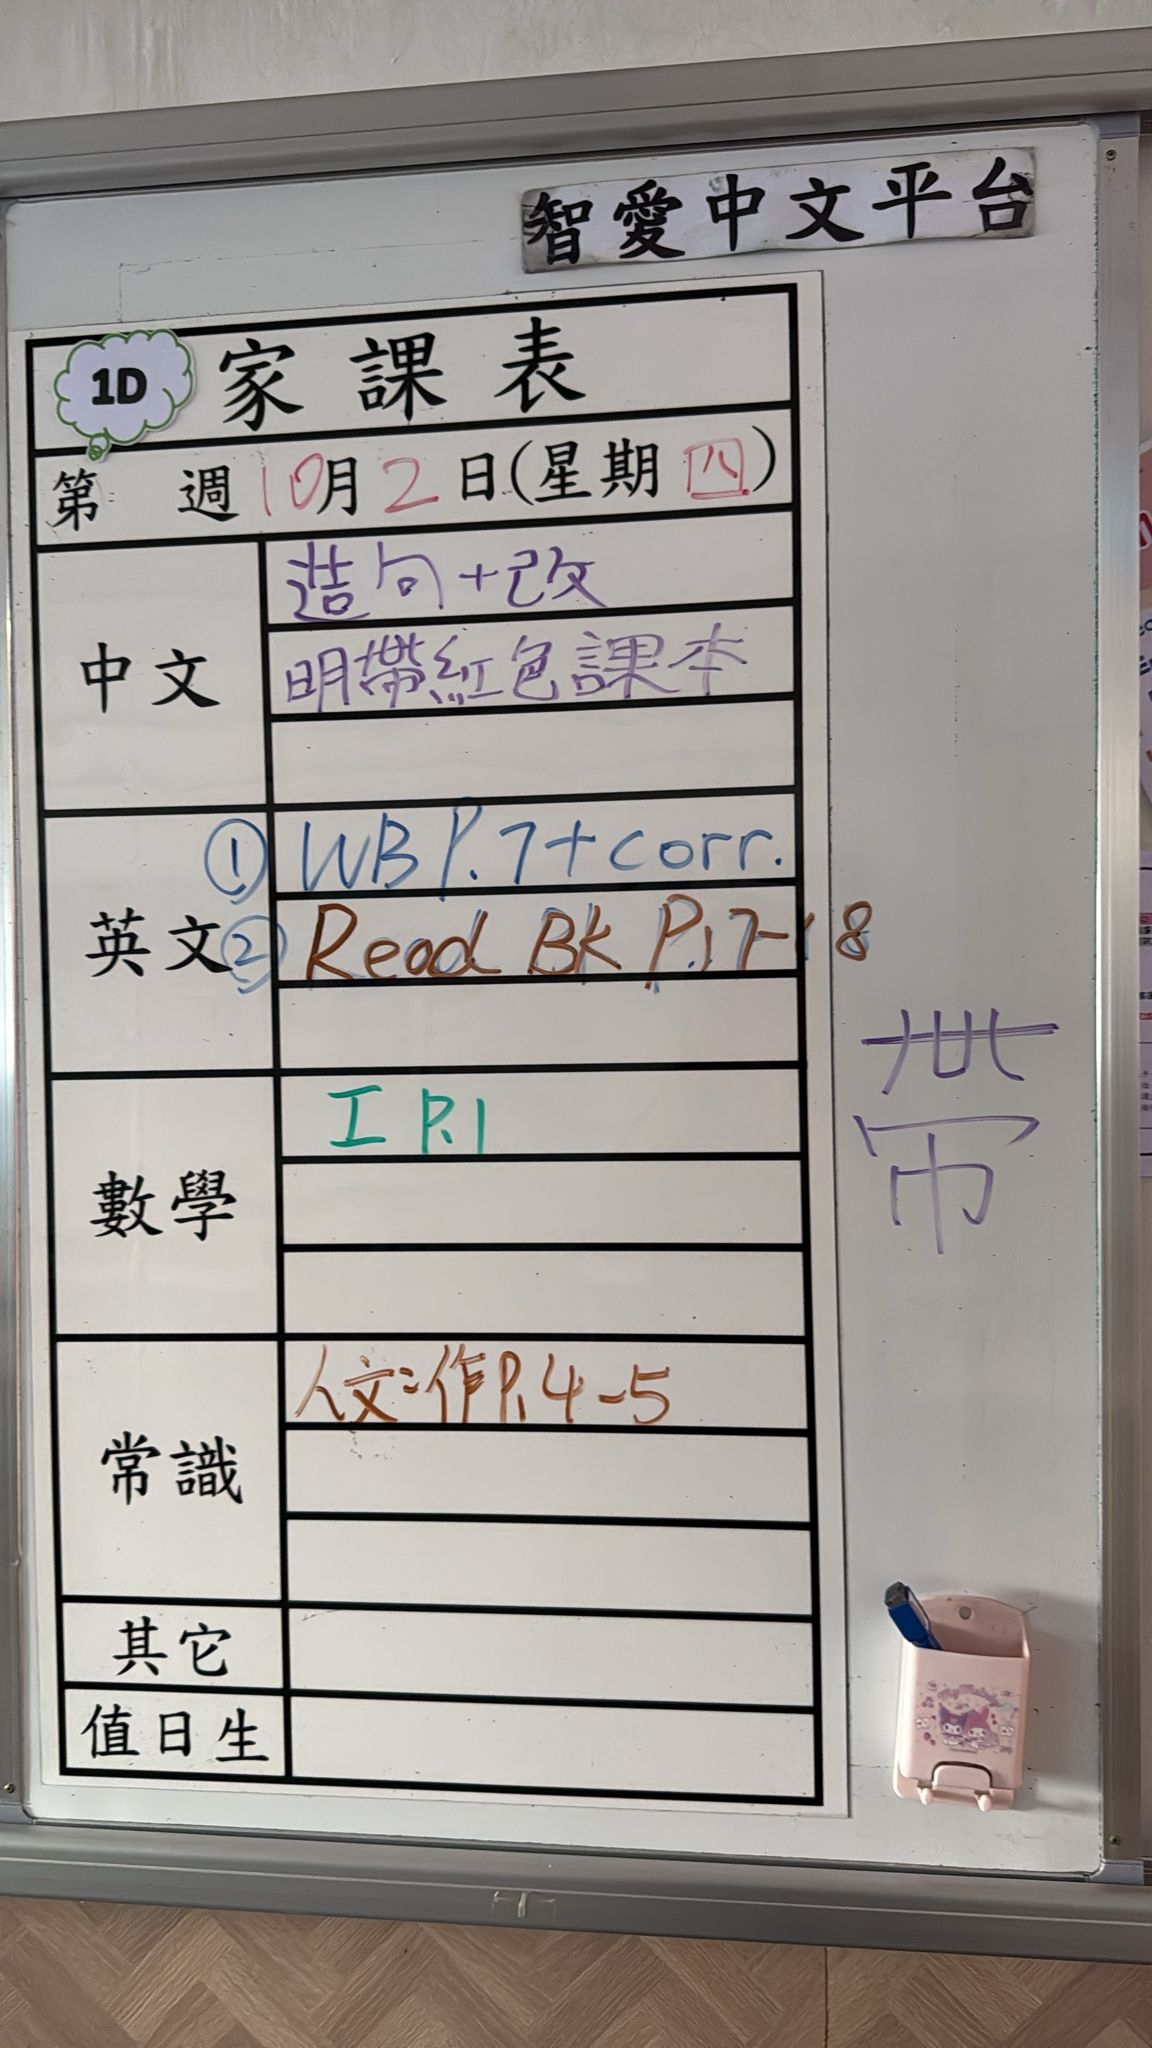 智愛中文平台
1D 家課表
第 週 10月2日(星期四)
中文
造句+改
明帶紅色課本
英文
① WB P.7+corr.
② Read BK P.17-18
數學
工 P.1
常識
人文:作P.4-5
其它
值日生
帶